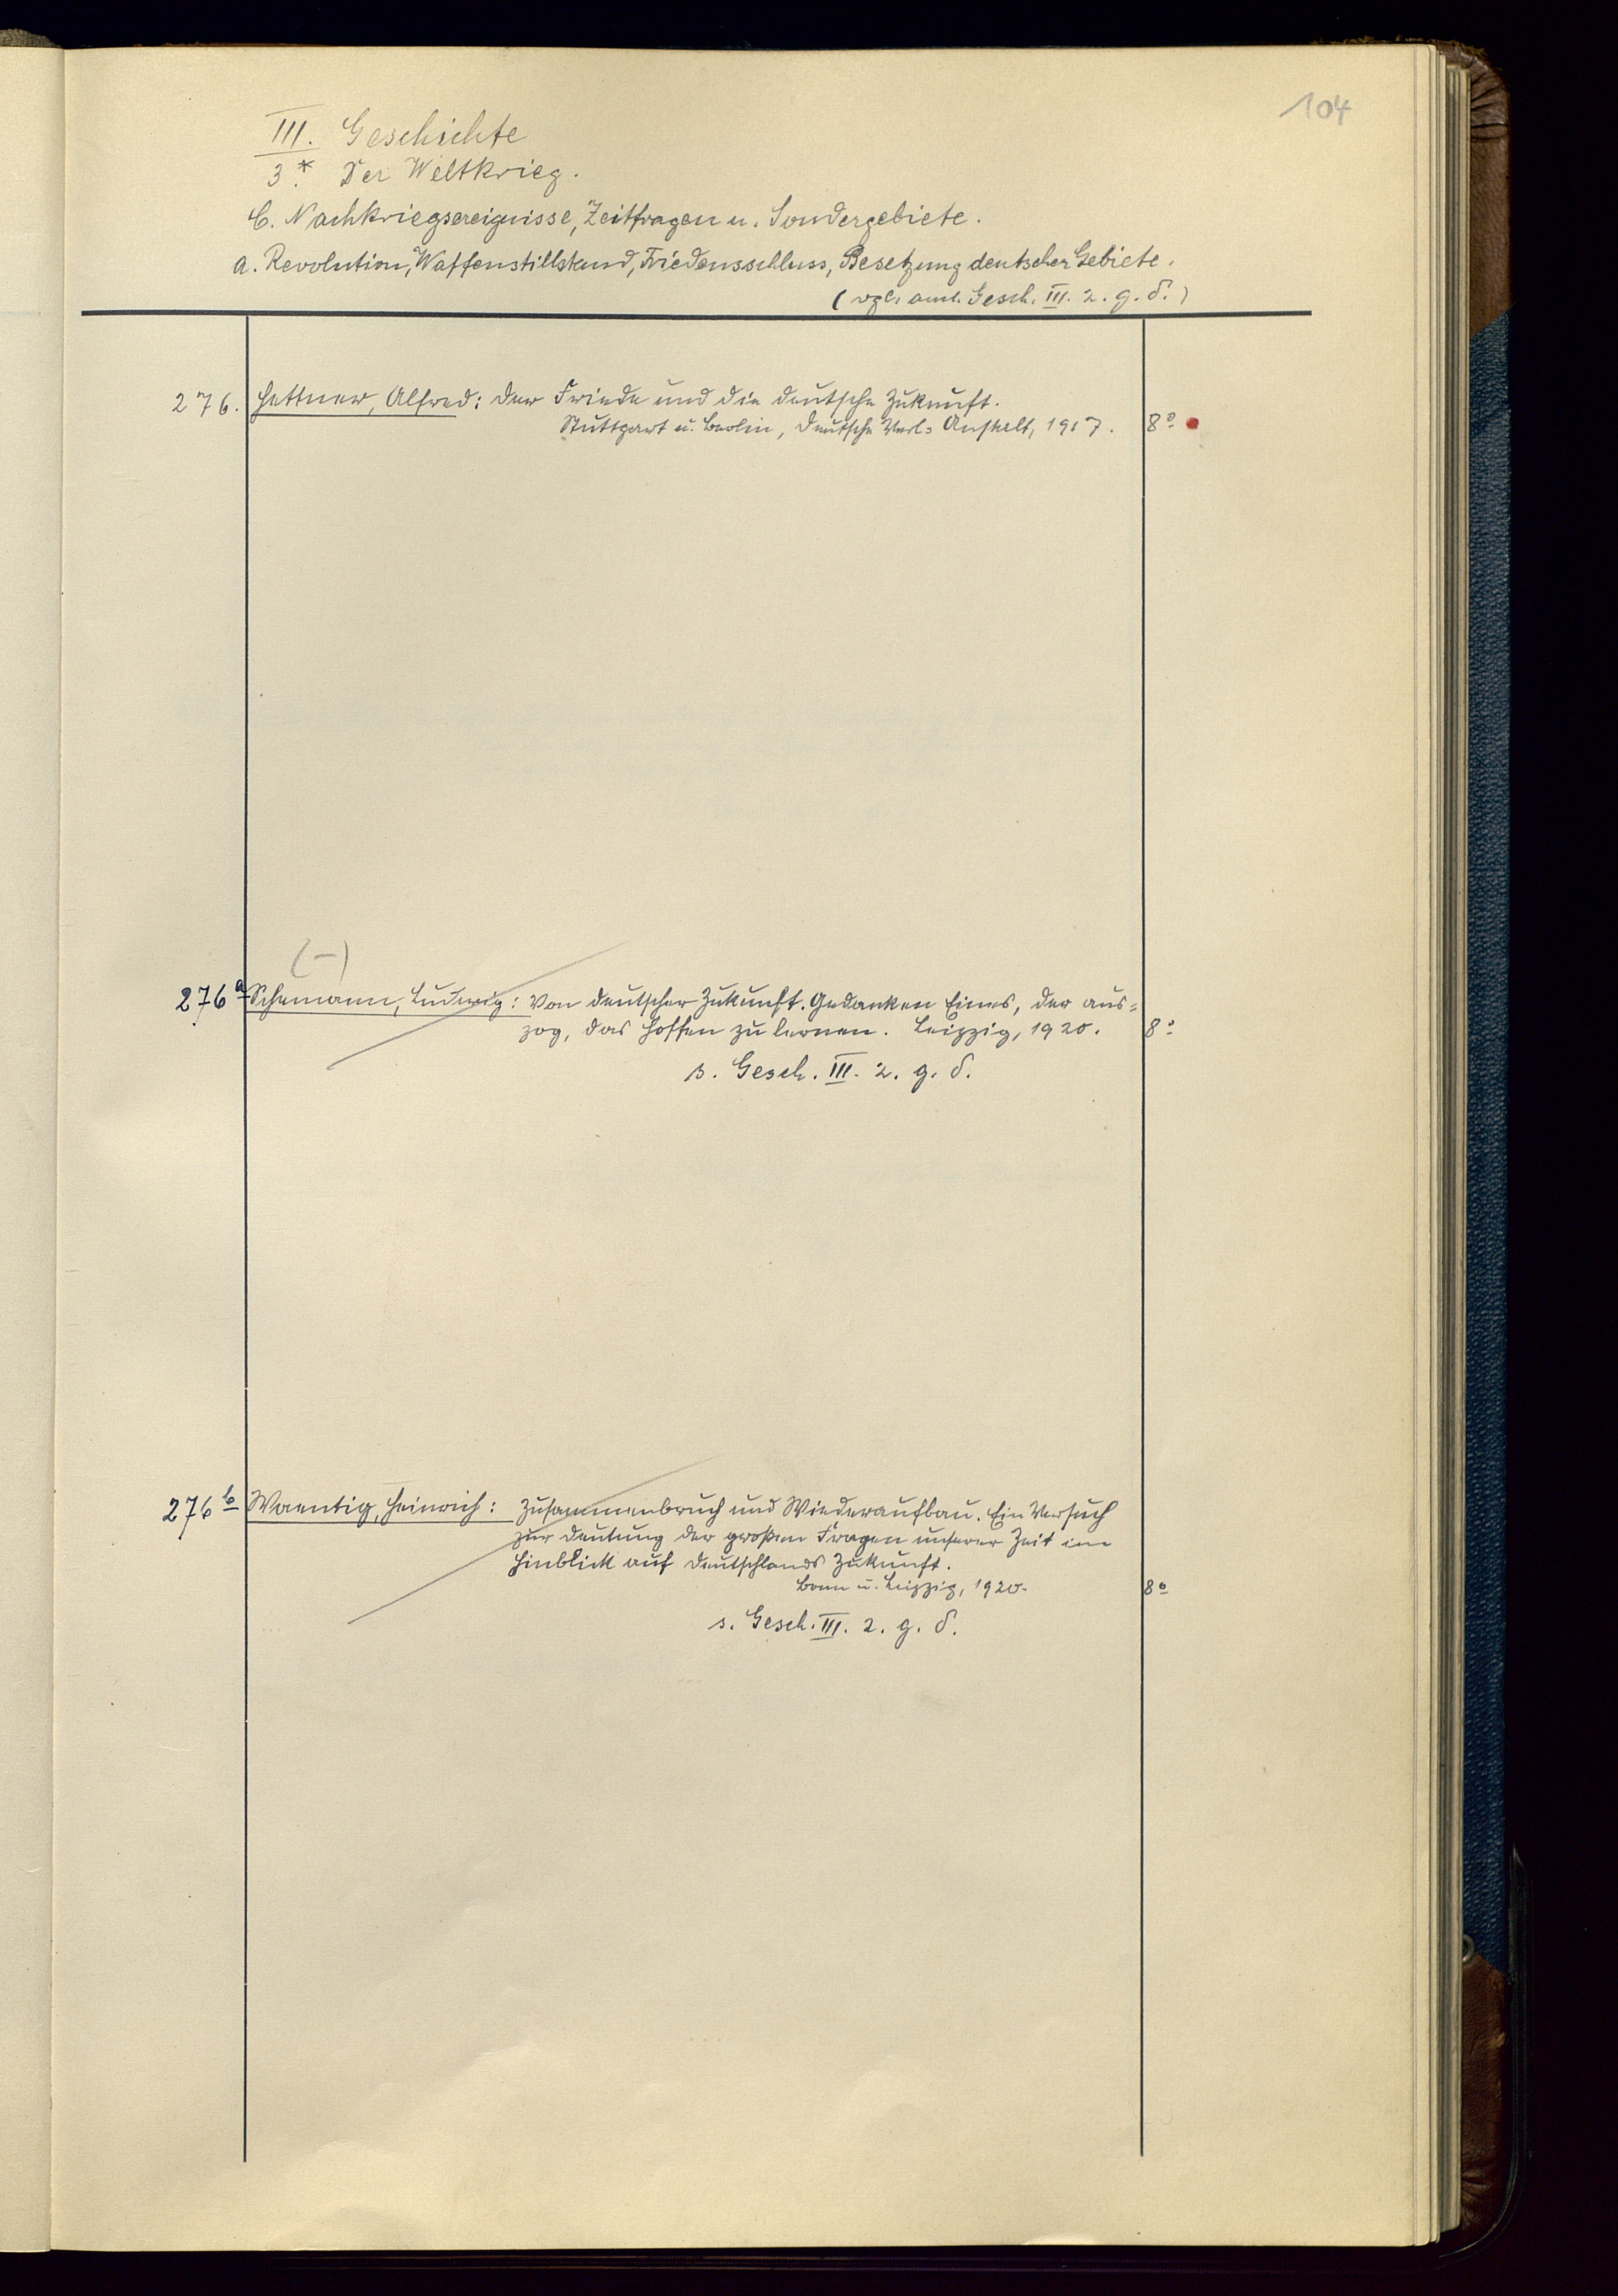 104
III. Geschichte
3*. Der Weltkrieg.
C. Nachkriegsereignisse, Zeitfragen u. Sondergebiete.
a. Revolution, Waffenstillstand, Friedensschluss, Besetzung deutscher Gebiete.
(vgl. Gesch. III. 2. g. δ.)
276. Hettner, Alfred: Der Friede und die deutsche Zukunft.
Stuttgart u. Berlin, Deutsche Verl.= Anstalt, 1917. 8°
(-)
276a Schemann, Ludwig: Von deutscher Zukunft. Gedanken Eines, der aus=
zog, das Hoffen zu lernen. Leipzig, 1920. 8°
s. Gesch. III. 2. g. δ.
276b Waentig, Heinrich: Zusammenbruch und Wiederaufbau. Ein Versuch
zur Deutung der großen Fragen unserer Zeit im
Hinblick auf Deutschlands Zukunft.
Bonn u. Leipzig, 1920. 8°
s. Gesch. III. 2. g. δ.